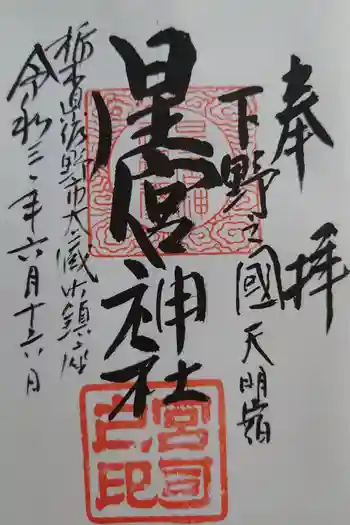 奉拝
下野之國 天明宿
星宮神社
栃木県佐野市大蔵町鎮座
令和三年六月十六日
宮司之印